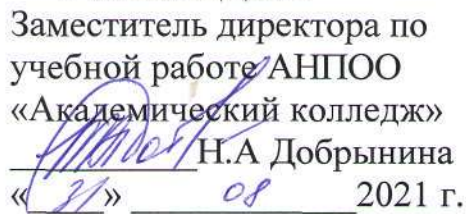 Заместитель директора по
учебной работе АНПОО
«Академический колледж»
__________Н.А Добрынина
«_31_» ___08___2021 г.